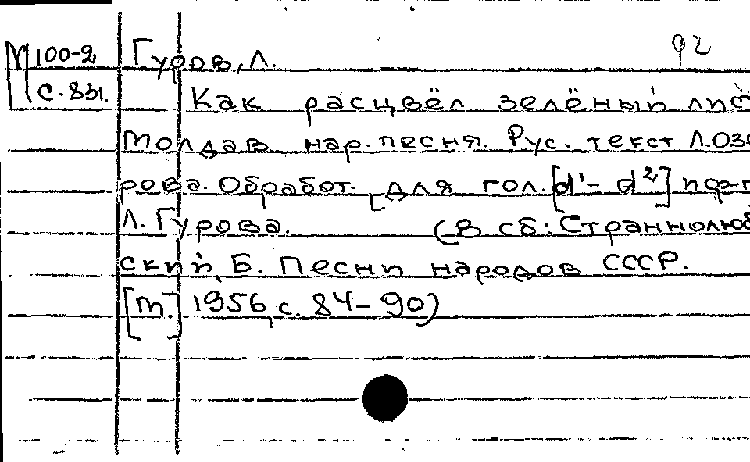 М 100-2 Гуров, Л. 92
С. 831.
Как расцвёл зелёный лис
Молдав. нар. песня. Рус. текст Л. Озе
рова. Обработ. [для гол. [d¹- d²] и ф-п
Л. Гурова. (В сб: Страннолюб
ский, Б. Песни народов СССР.
[м.] 1956, с. 84-90)